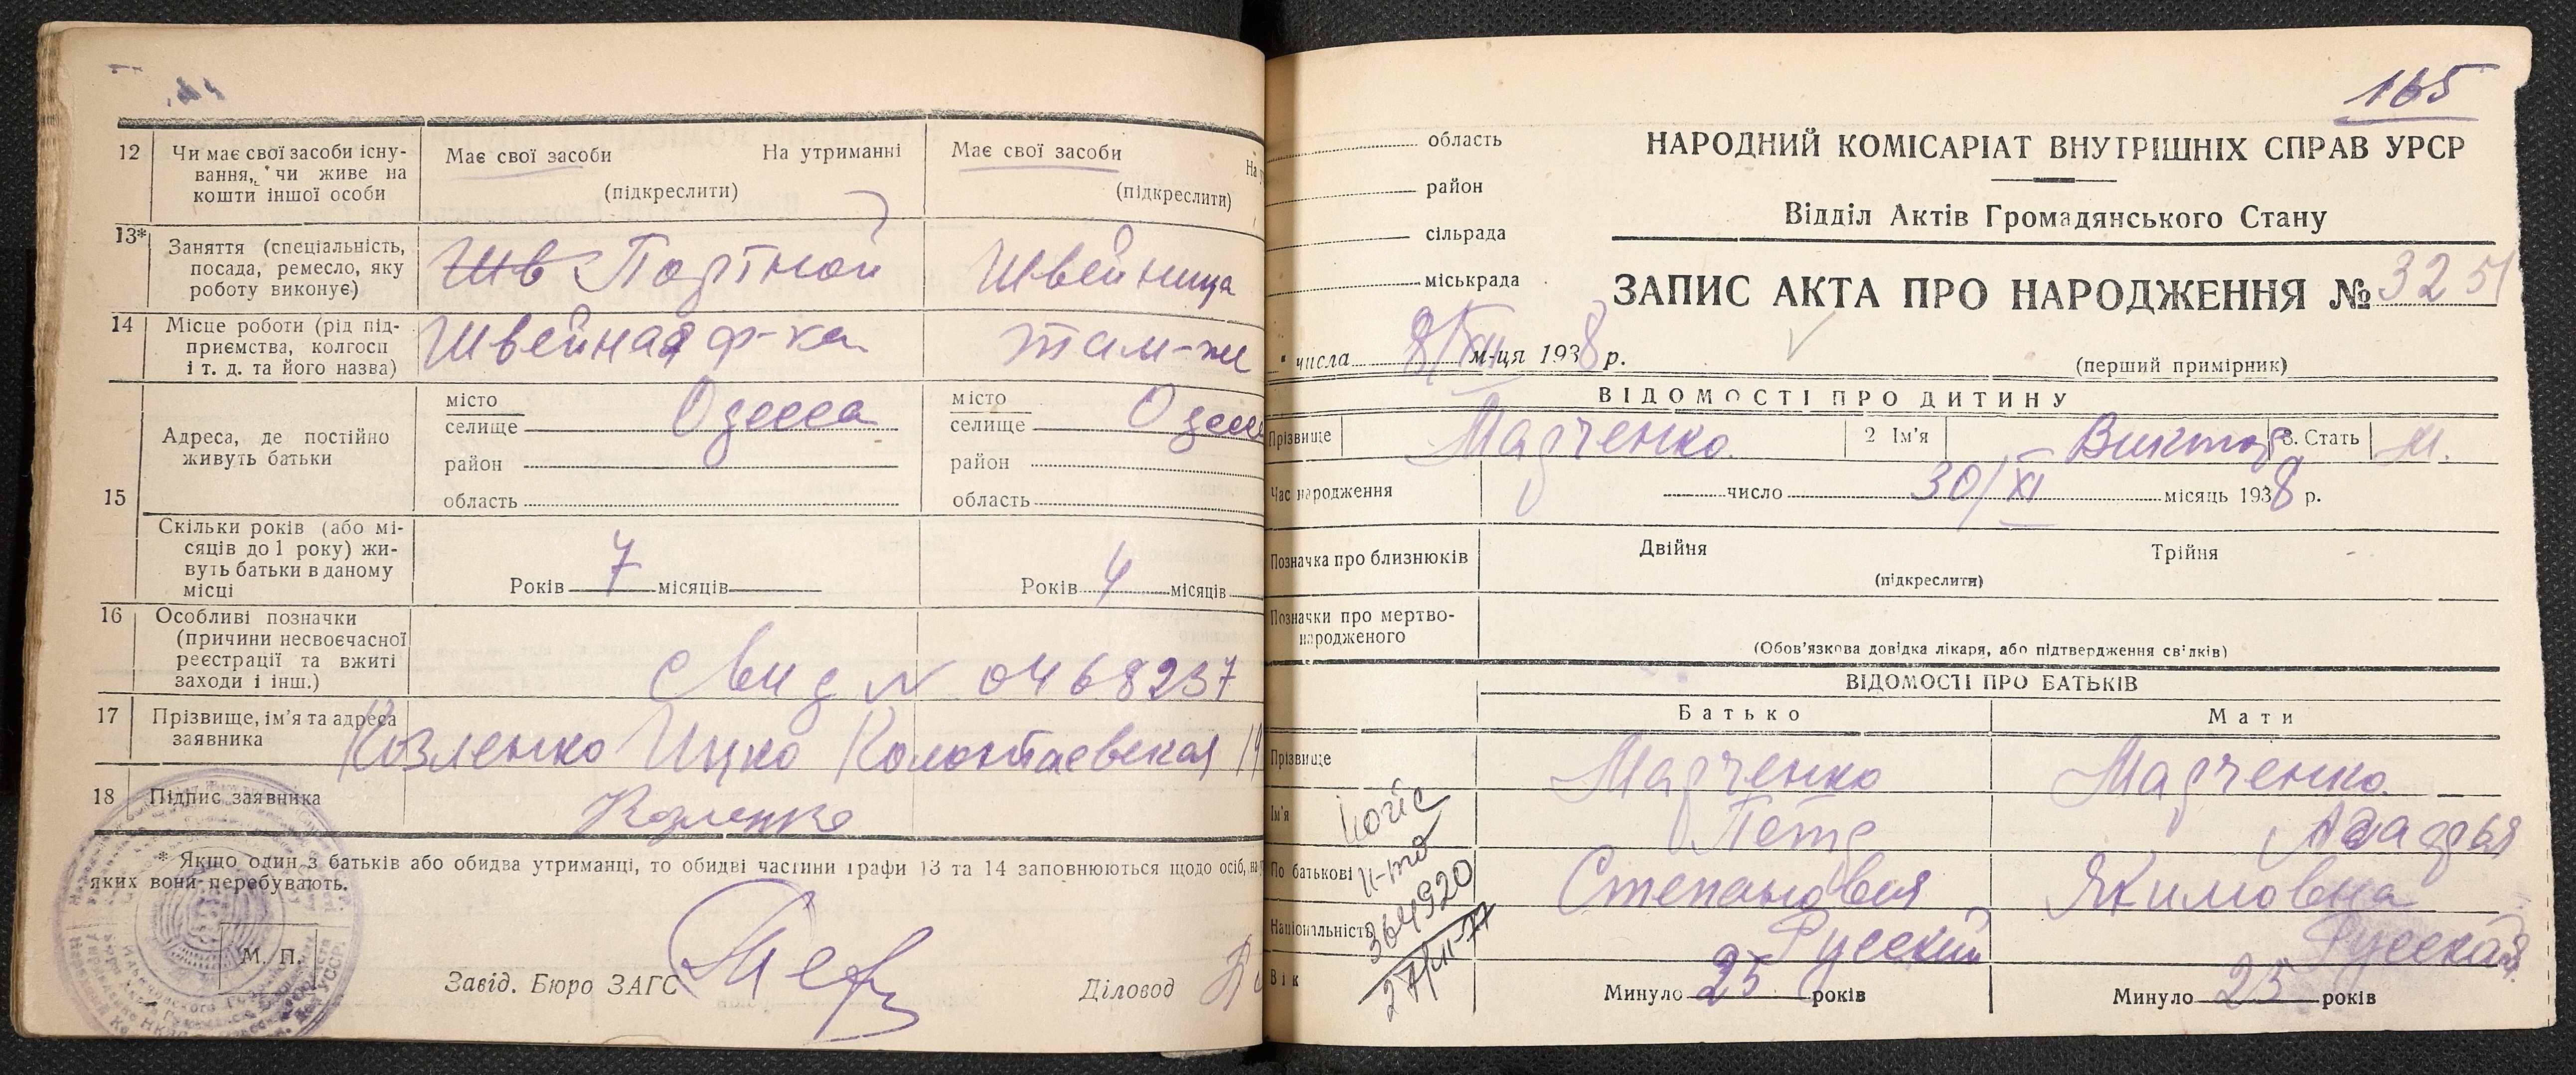 12 Чи має свої засоби існу-
вання, чи живе на
кошти іншої особи
Має свої засоби На утриманні
(підкреслити)
Має свої засоби На
(підкреслити)
13* Заняття (спеціальність,
посада, ремесло, яку
роботу виконує)
Шв Портной
Швейница
14 Місце роботи (рід під-
приємства, колгосп
і т. д. та його назва)
Швейная ф-ка
там-же
15
Адреса, де постійно
живуть батьки
місто
селище Одесса
район
область
місто
селище Одесс
район
область
Скільки років (або мі-
сяців до 1 року) жи-
вуть батьки в даному
місці
Років 7 місяців
Років 4 місяців
16 Особливі позначки
(причини несвоєчасної
реєстрації та вжиті
заходи і інш.)
Свид N 0468237
17 Прізвище, ім'я та адреса
заявника
Козленко Ицко Колонтаевская
18 Підпис заявника
Козленко
* Якщо один з батьків або обидва утриманці, то обидві частини графи 13 та 14 заповнюються щодо осіб, на
яких вони перебувають.
М. П.
Завід. Бюро ЗАГС
Діловод
165
область
район
сільрада
міськрада
НАРОДНИЙ КОМІСАРІАТ ВНУТРІШНІХ СПРАВ УРСР
Відділ Актів Громадянського Стану
ЗАПИС АКТА ПРО НАРОДЖЕННЯ № 3251
" числа 8/XII м-ця 1938 р.
(перший примірник)
ВІДОМОСТІ ПРО ДИТИНУ
Прізвище Марченко 2 Ім'я Виктор 3. Стать М.
Час народження число 30/XI місяць 1938 р.
Позначка про близнюків Двійня Трійня
(підкреслити)
Позначки про мертво-
народженого
(Обов'язкова довідка лікаря, або підтвердження свідків)
ВІДОМОСТІ ПРО БАТЬКІВ
Батько Мати
Прізвище Марченко Марченко
Ім'я Петр
По батькові Степанович Якимовна
Національність Русский Русская
Вік Минуло 25 років Минуло 23 років
364920
27/III-77